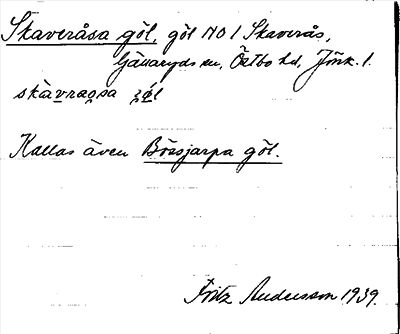 Skaveråsa göl, göl NO I Skaverås,
Gällaryds sn, Östbo hd, Jönk. l.
skàvraọsa
Kallas även Bössjarpa göl.
Fritz Andersson 1939.